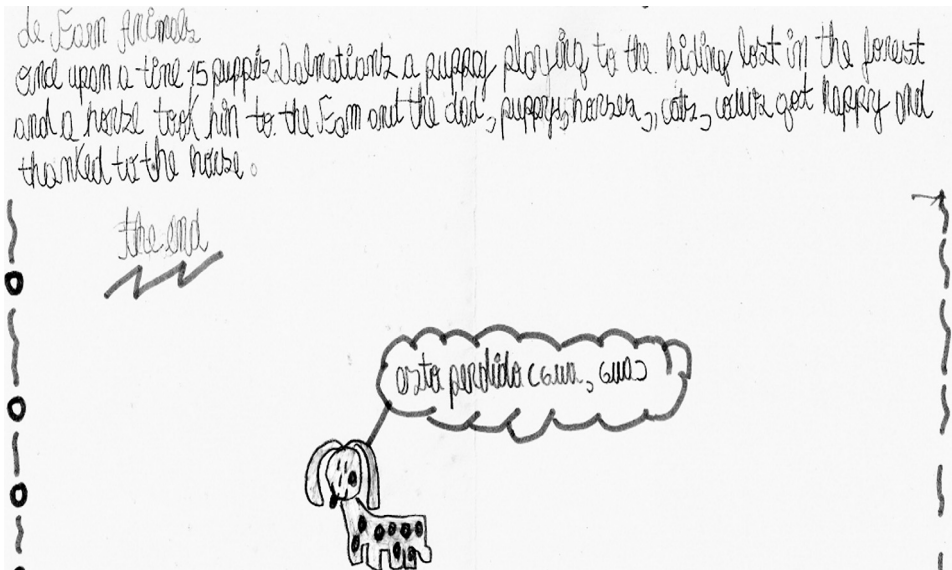 de Farm Animals
ond upon a time 15 puppis Dalmatians a puppy playing to the hiding lost in the forest
and a horse took him to the Farm and the dad, puppys, horses, cats, cows got happy and
thanked to the horse.
the end
esta perdido (gua, gua)